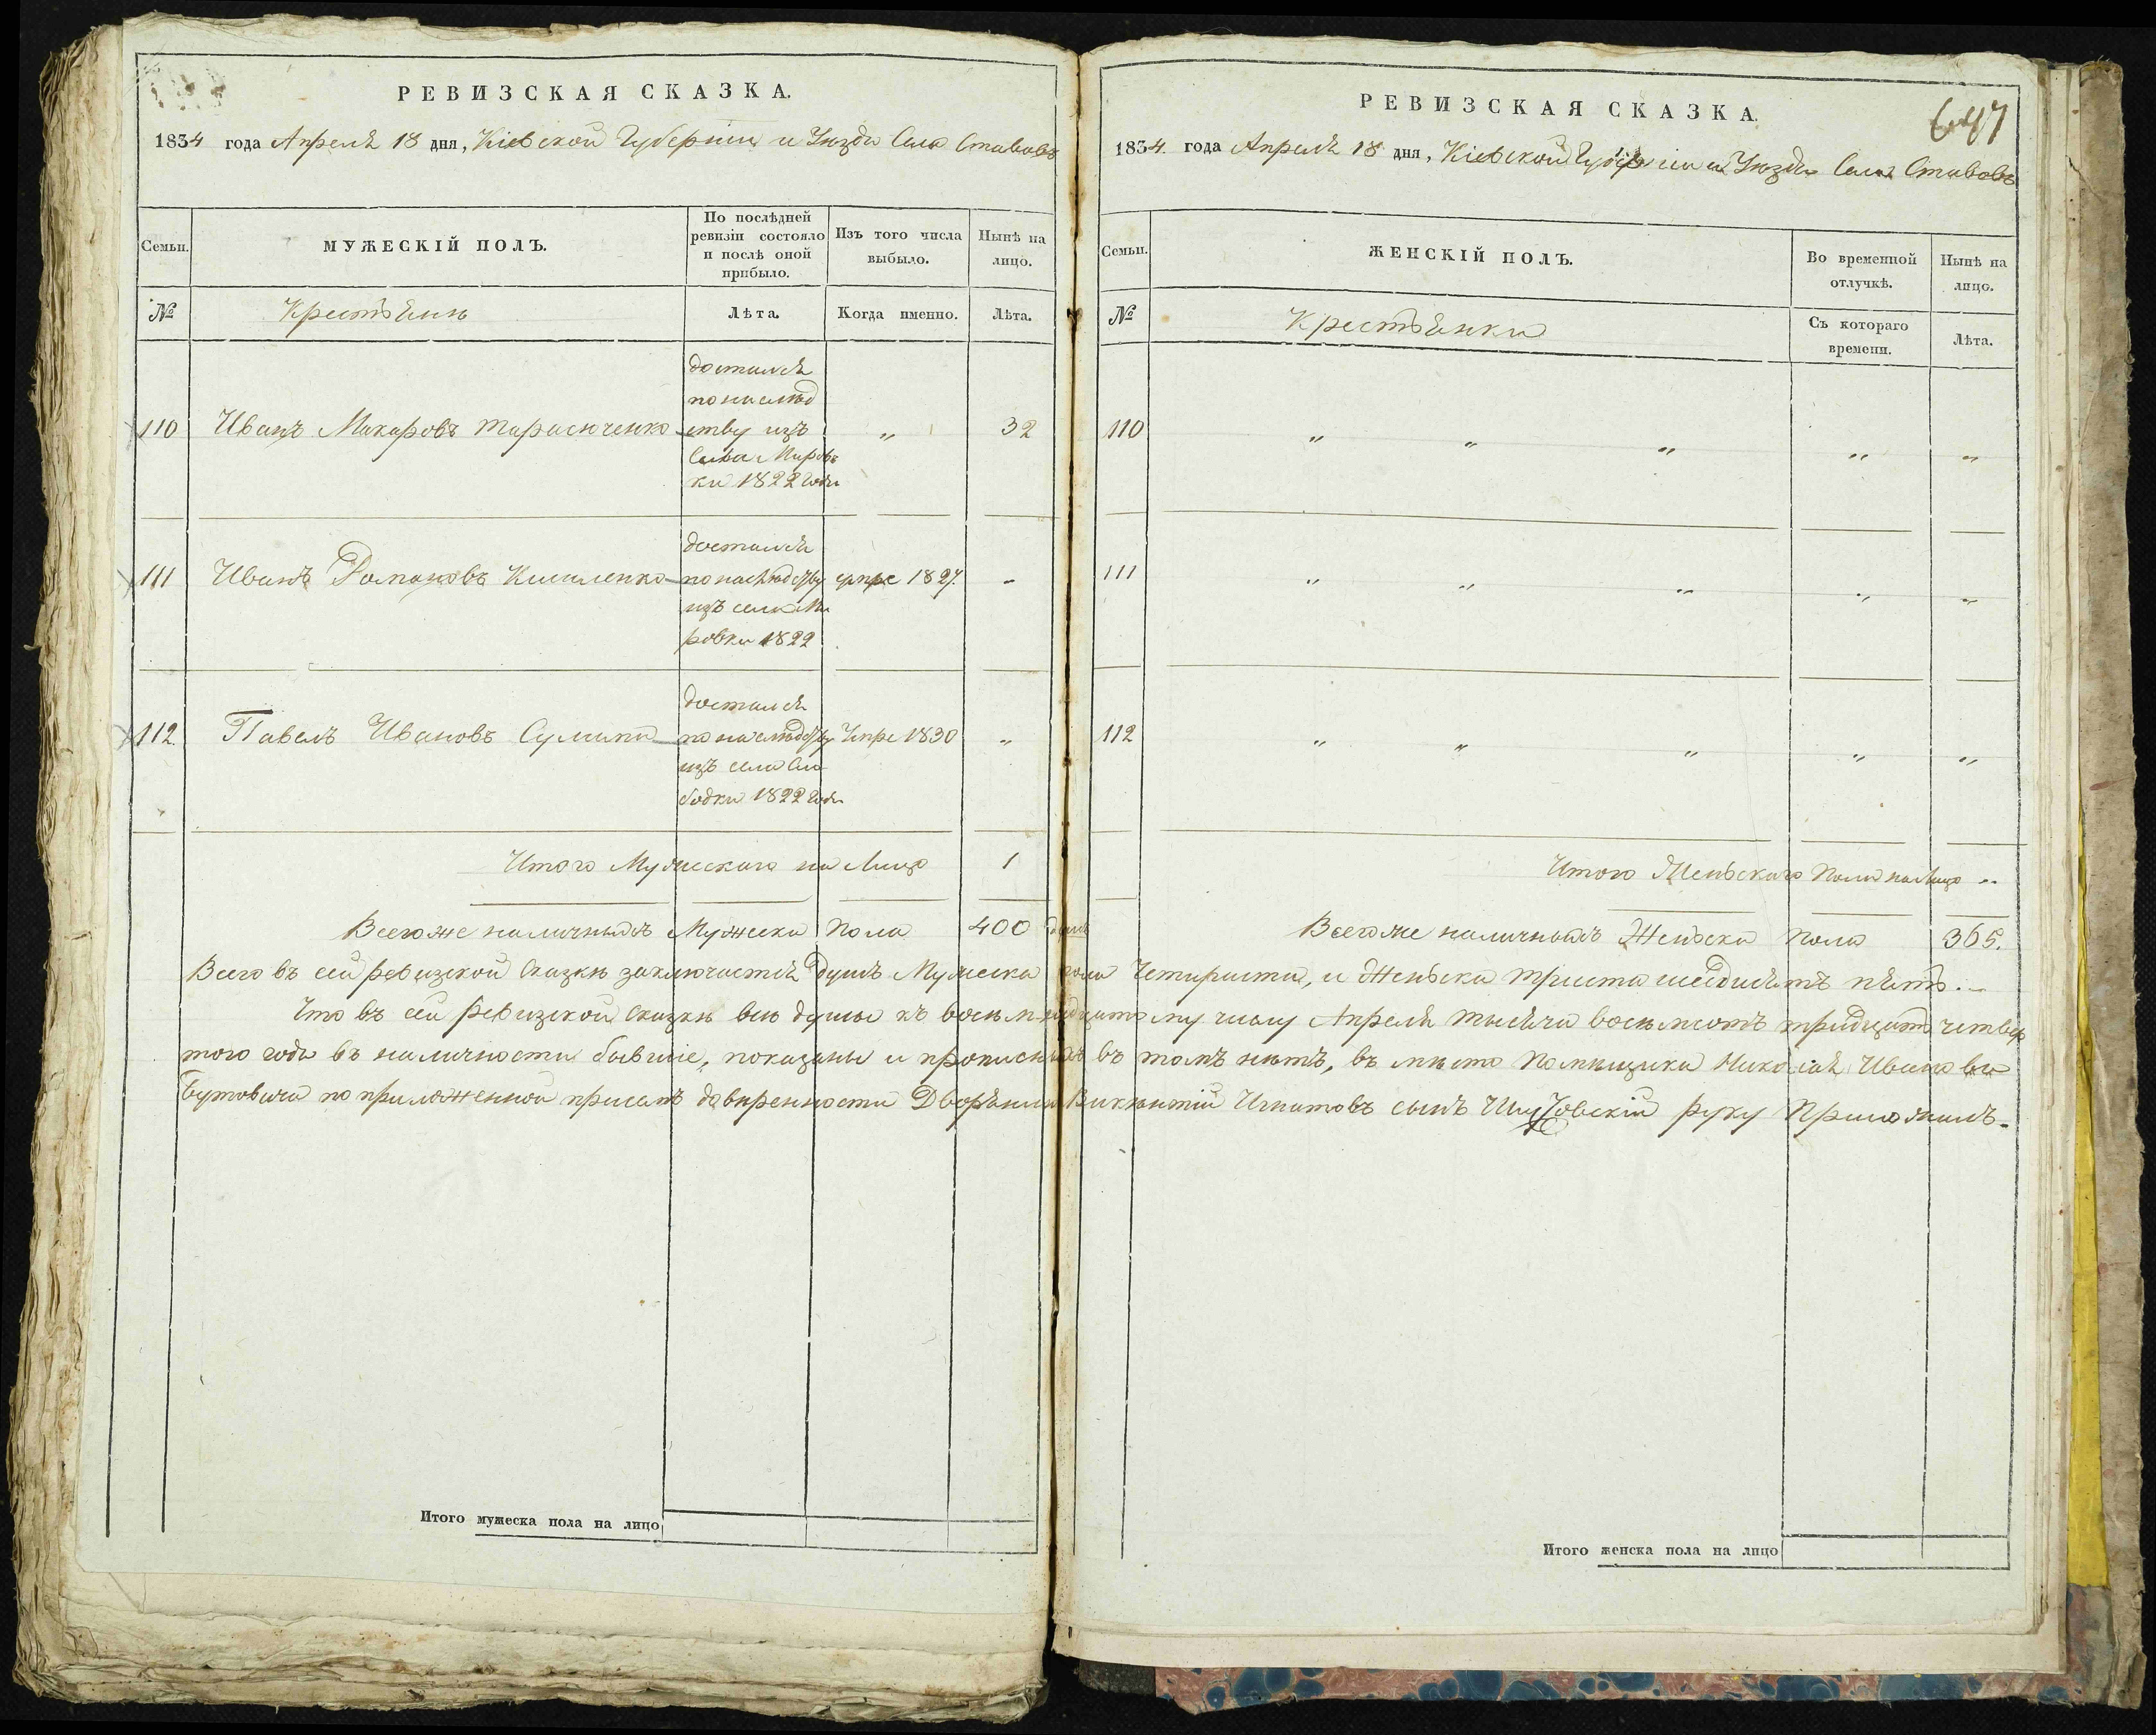 РЕВИЗСКАЯ СКАЗКА.
1834 года Апреля 18 дня, Кіевской Губерніи и Уезда Села Ставовъ
Семьи.
МУЖЕСКІЙ ПОЛЪ.
По послѣдней ревизіи состояло и послѣ оной прибыло.
Изъ того числа выбыло.
Нынѣ на лицо.
№
Крестьяне
Лѣта.
Когда именно.
Лѣта.
110
Иванъ Макаровъ Тарасюченко
достался
по наслед
ству изъ
Села Миров
ки 1822 года
„
32
111
Иванъ Романовъ
достался
по наследству
изъ села Ми
ровки 1822
умре 1827.
„
112.
Павелъ Ивановъ
достался
по наследству
изъ села Сло
бодки 1822 года
Умре 1830
„
Итого Мужескаго на Лицо
1
Всего же наличныхъ Мужеска Пола
400 душъ
РЕВИЗСКАЯ СКАЗКА.
647
1834 года Апреля 18 дня, Кіевской Губерніи и Уезда Села Ставовъ
Семьи.
ЖЕНСКІЙ ПОЛЪ.
Во временной отлучкѣ.
Нынѣ на лицо.
№
Крестьянки
Съ котораго времени.
Лѣта.
110
„ „ „ „ „
111
„ „ „ „ „
112
„ „ „ „ „
Итого Женьскаго Пола на Лицо „
Всего же наличныхъ Женьска Пола
365.
Всего въ сей ревизской Сказке заключается душъ Мужеска пола Четириста, и Женьска триста шесдисятъ пять.
Что въ сей ревизской сказке все душы къ восемнадцатому числу Апреля тысяча восемсотъ тридцатъ четвер
того года въ наличности бывшіе, показаны и прописныхъ въ томъ нетъ, въ место Помещика Николая Иванова
Бутовича по приложенной присемъ доверенности Дворянинъ Викентій Игнатовъ сынъ руку Приложилъ.
Итого мужеска пола на лицо
Итого женска пола на лицо